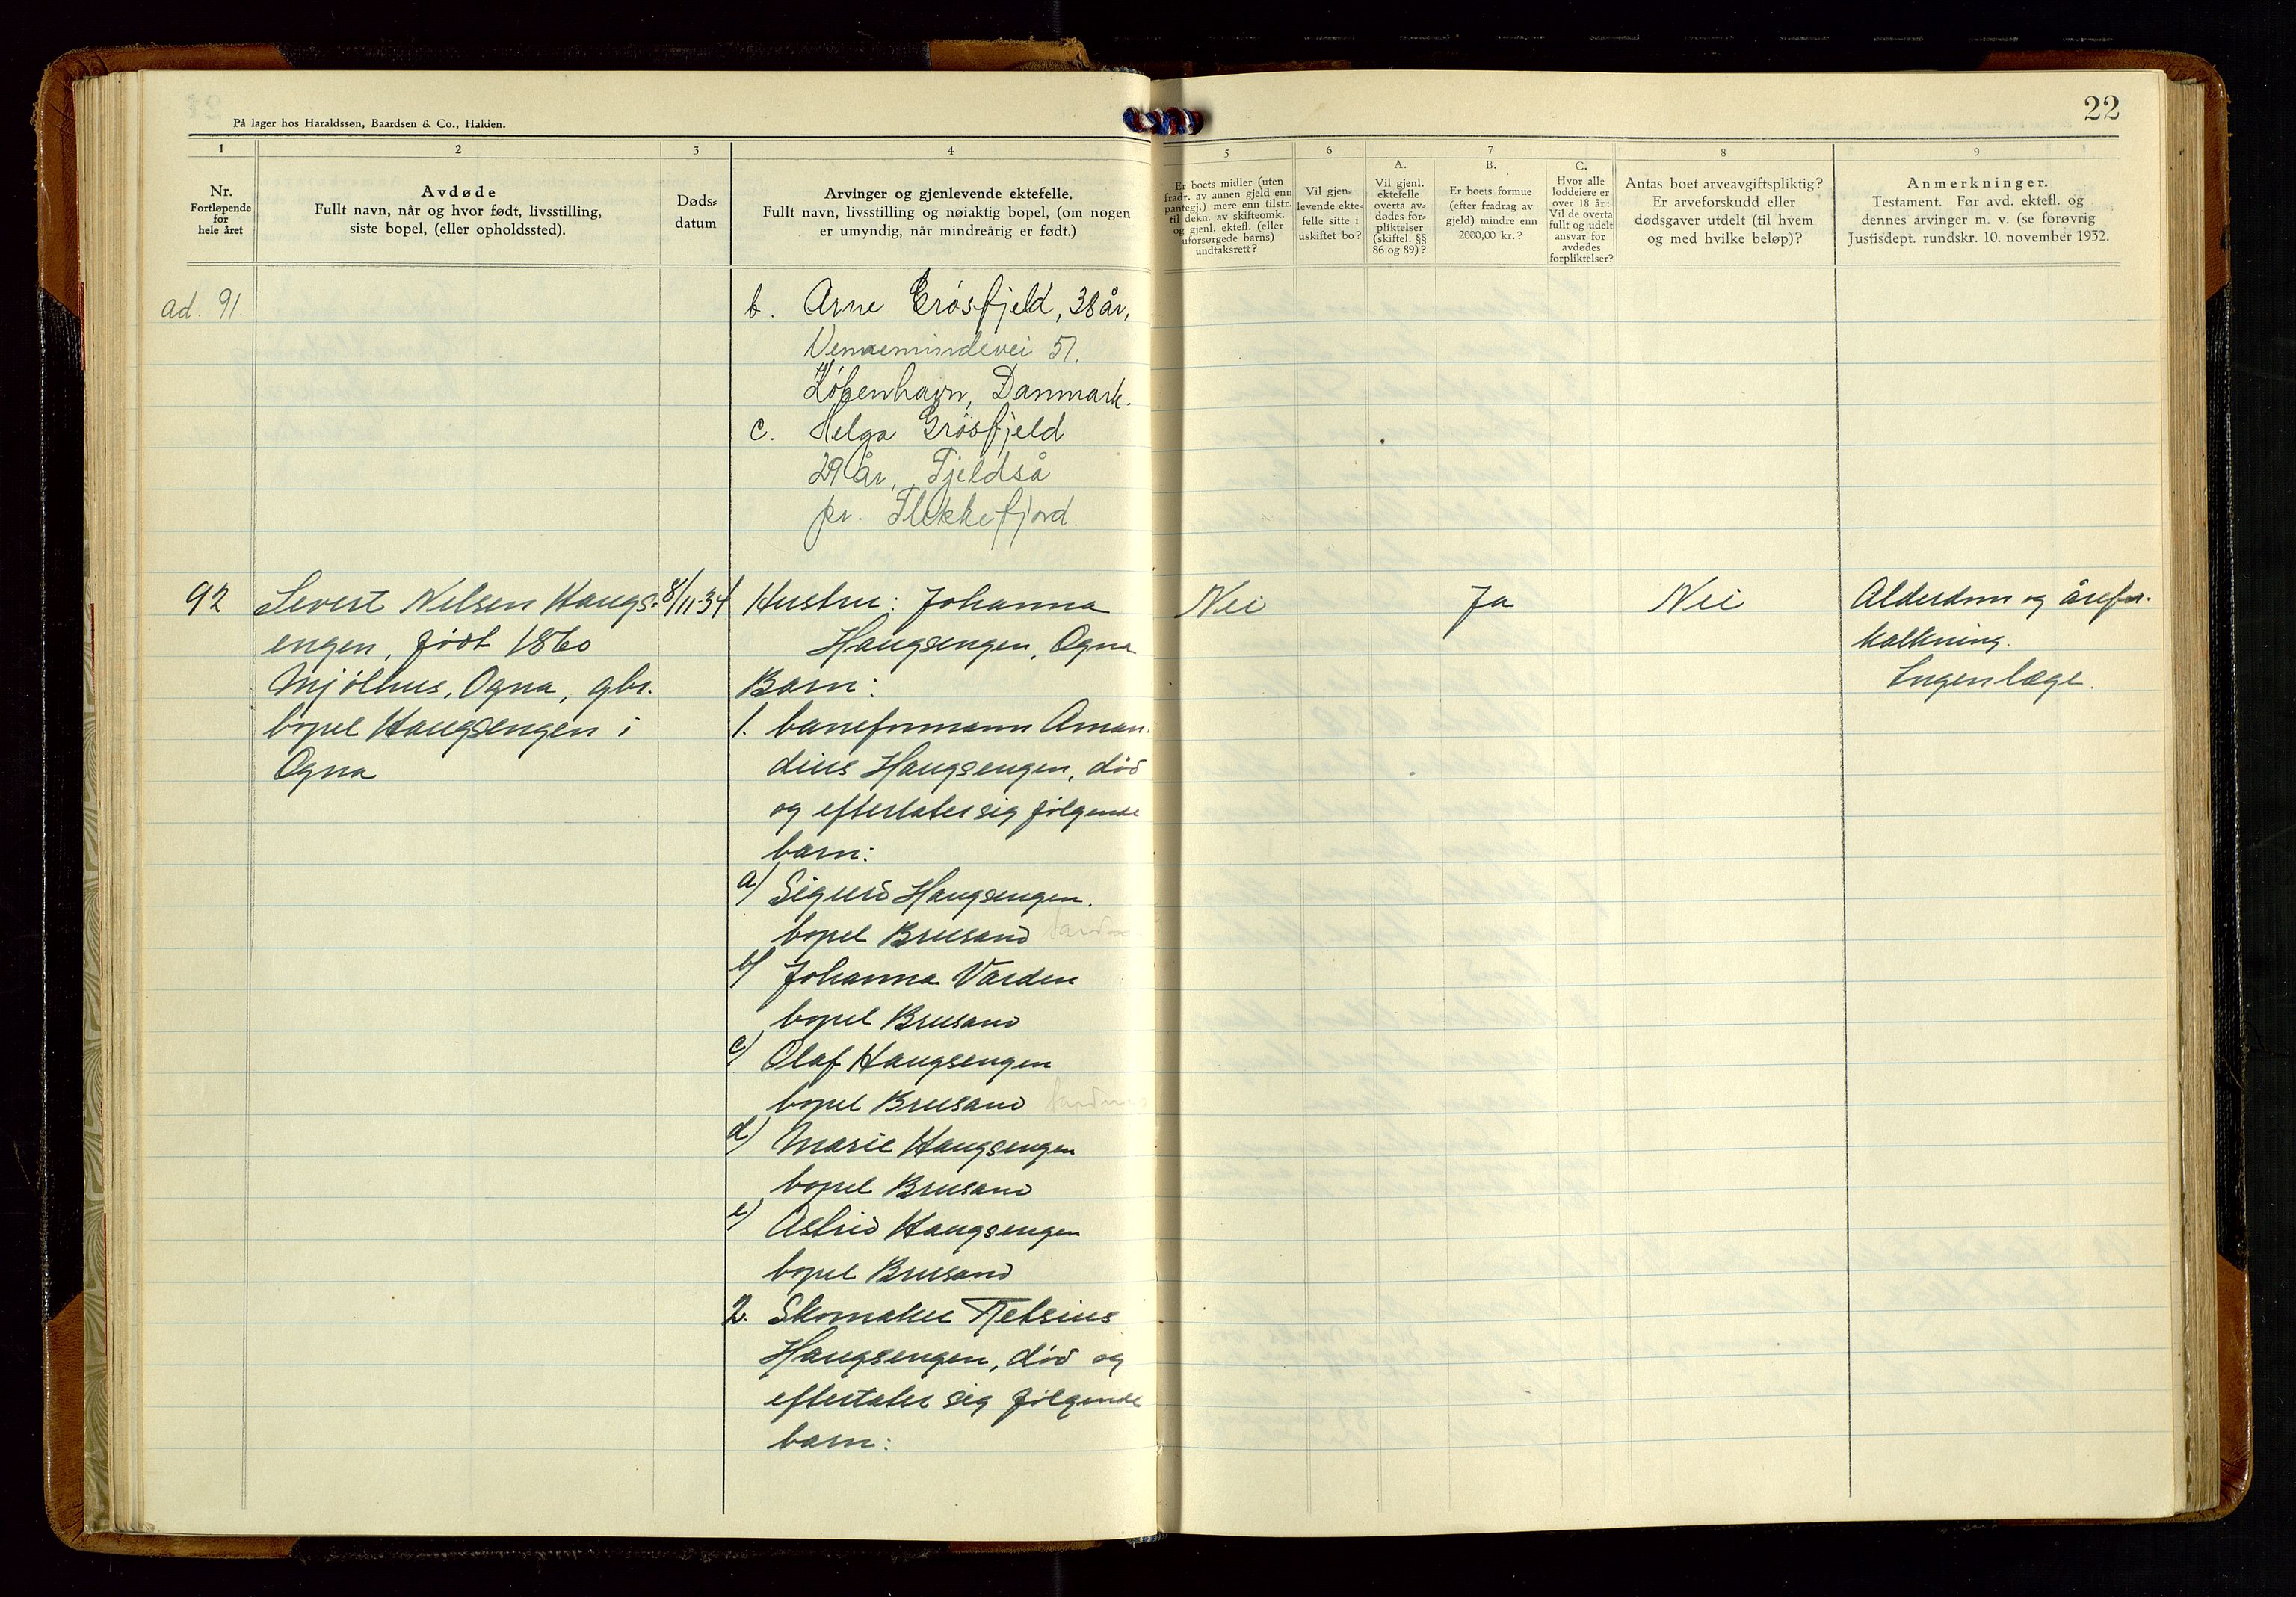 På lager hos Haraldssøn, Baardsen & Co., Halden.
22
1
2
3
4
5
6
7
8
9
Nr.
Fortløpende
for
hele året
Avdøde
Fullt navn, når og hvor født, livsstilling,
siste bopel, (eller opholdssted).
Døds-
datum
Arvinger og gjenlevende ektefelle.
Fullt navn, livsstilling og nøiaktig bopel, (om nogen
er umyndig, når mindreårig er født.)
Er boets midler (uten
fradr. av annen gjeld enn
pantegj.) mere enn tilstr.
til dekn. av skifteomk.
og gjenl. ektefl. (eller
uforsørgede barns)
undtaksrett?
Vil gjen-
levende ekte-
felle sitte i
uskiftet bo?
A.
Vil gjenl.
ektefelle
overta av-
dødes for-
pliktelser
(skiftel. §§
86 og 89)?
B.
Er boets formue
(efter fradrag av
gjeld) mindre enn
2000,00 kr.?
C.
Hvor alle
loddeiere er
over 18 år:
Vil de overta
fullt og udelt
ansvar for
avdødes
forpliktelser?
Antas boet arveavgiftspliktig?
Er arveforskudd eller
dødsgaver utdelt (til hvem
og med hvilke beløp)?
Anmerkninger.
Testament. Før avd. ektefl. og
dennes arvinger m. v. (se forøvrig
Justisdept. rundskr. 10. november 1932.
ad. 91.
b. Arne Grösfjeld, 38 år,
51.
København, Danmark.
c. Helga Grösfjeld
29 år, Fjeldså
pr. Flekkefjord.
92
Severt Nelsen Haugs-
engen, født 1860
Mjølhus, Ogna, gbr.
bopel Haugsengen i
Ogna
8/11-34
Hustru: Johanna
Haugsengen, Ogna
Barn:
1. baneformann Aman-
dius Haugsengen, død
og efterlater sig følgende
barn:
a) Sigurd Haugsengen.
bopel Brusand
b) Johanna Varden
bopel Brusand
c) Olaf Haugsengen
bopel Brusand
d) Marie Haugsengen
bopel Brusand
e) Astrid Haugsengen
bopel Brusand
2. Skomaker
Haugsengen, død og
efterlater sig følgende
barn:
Nei
Ja
Nei
Alderdom og årefor-
kalkning.
Ingen læge.